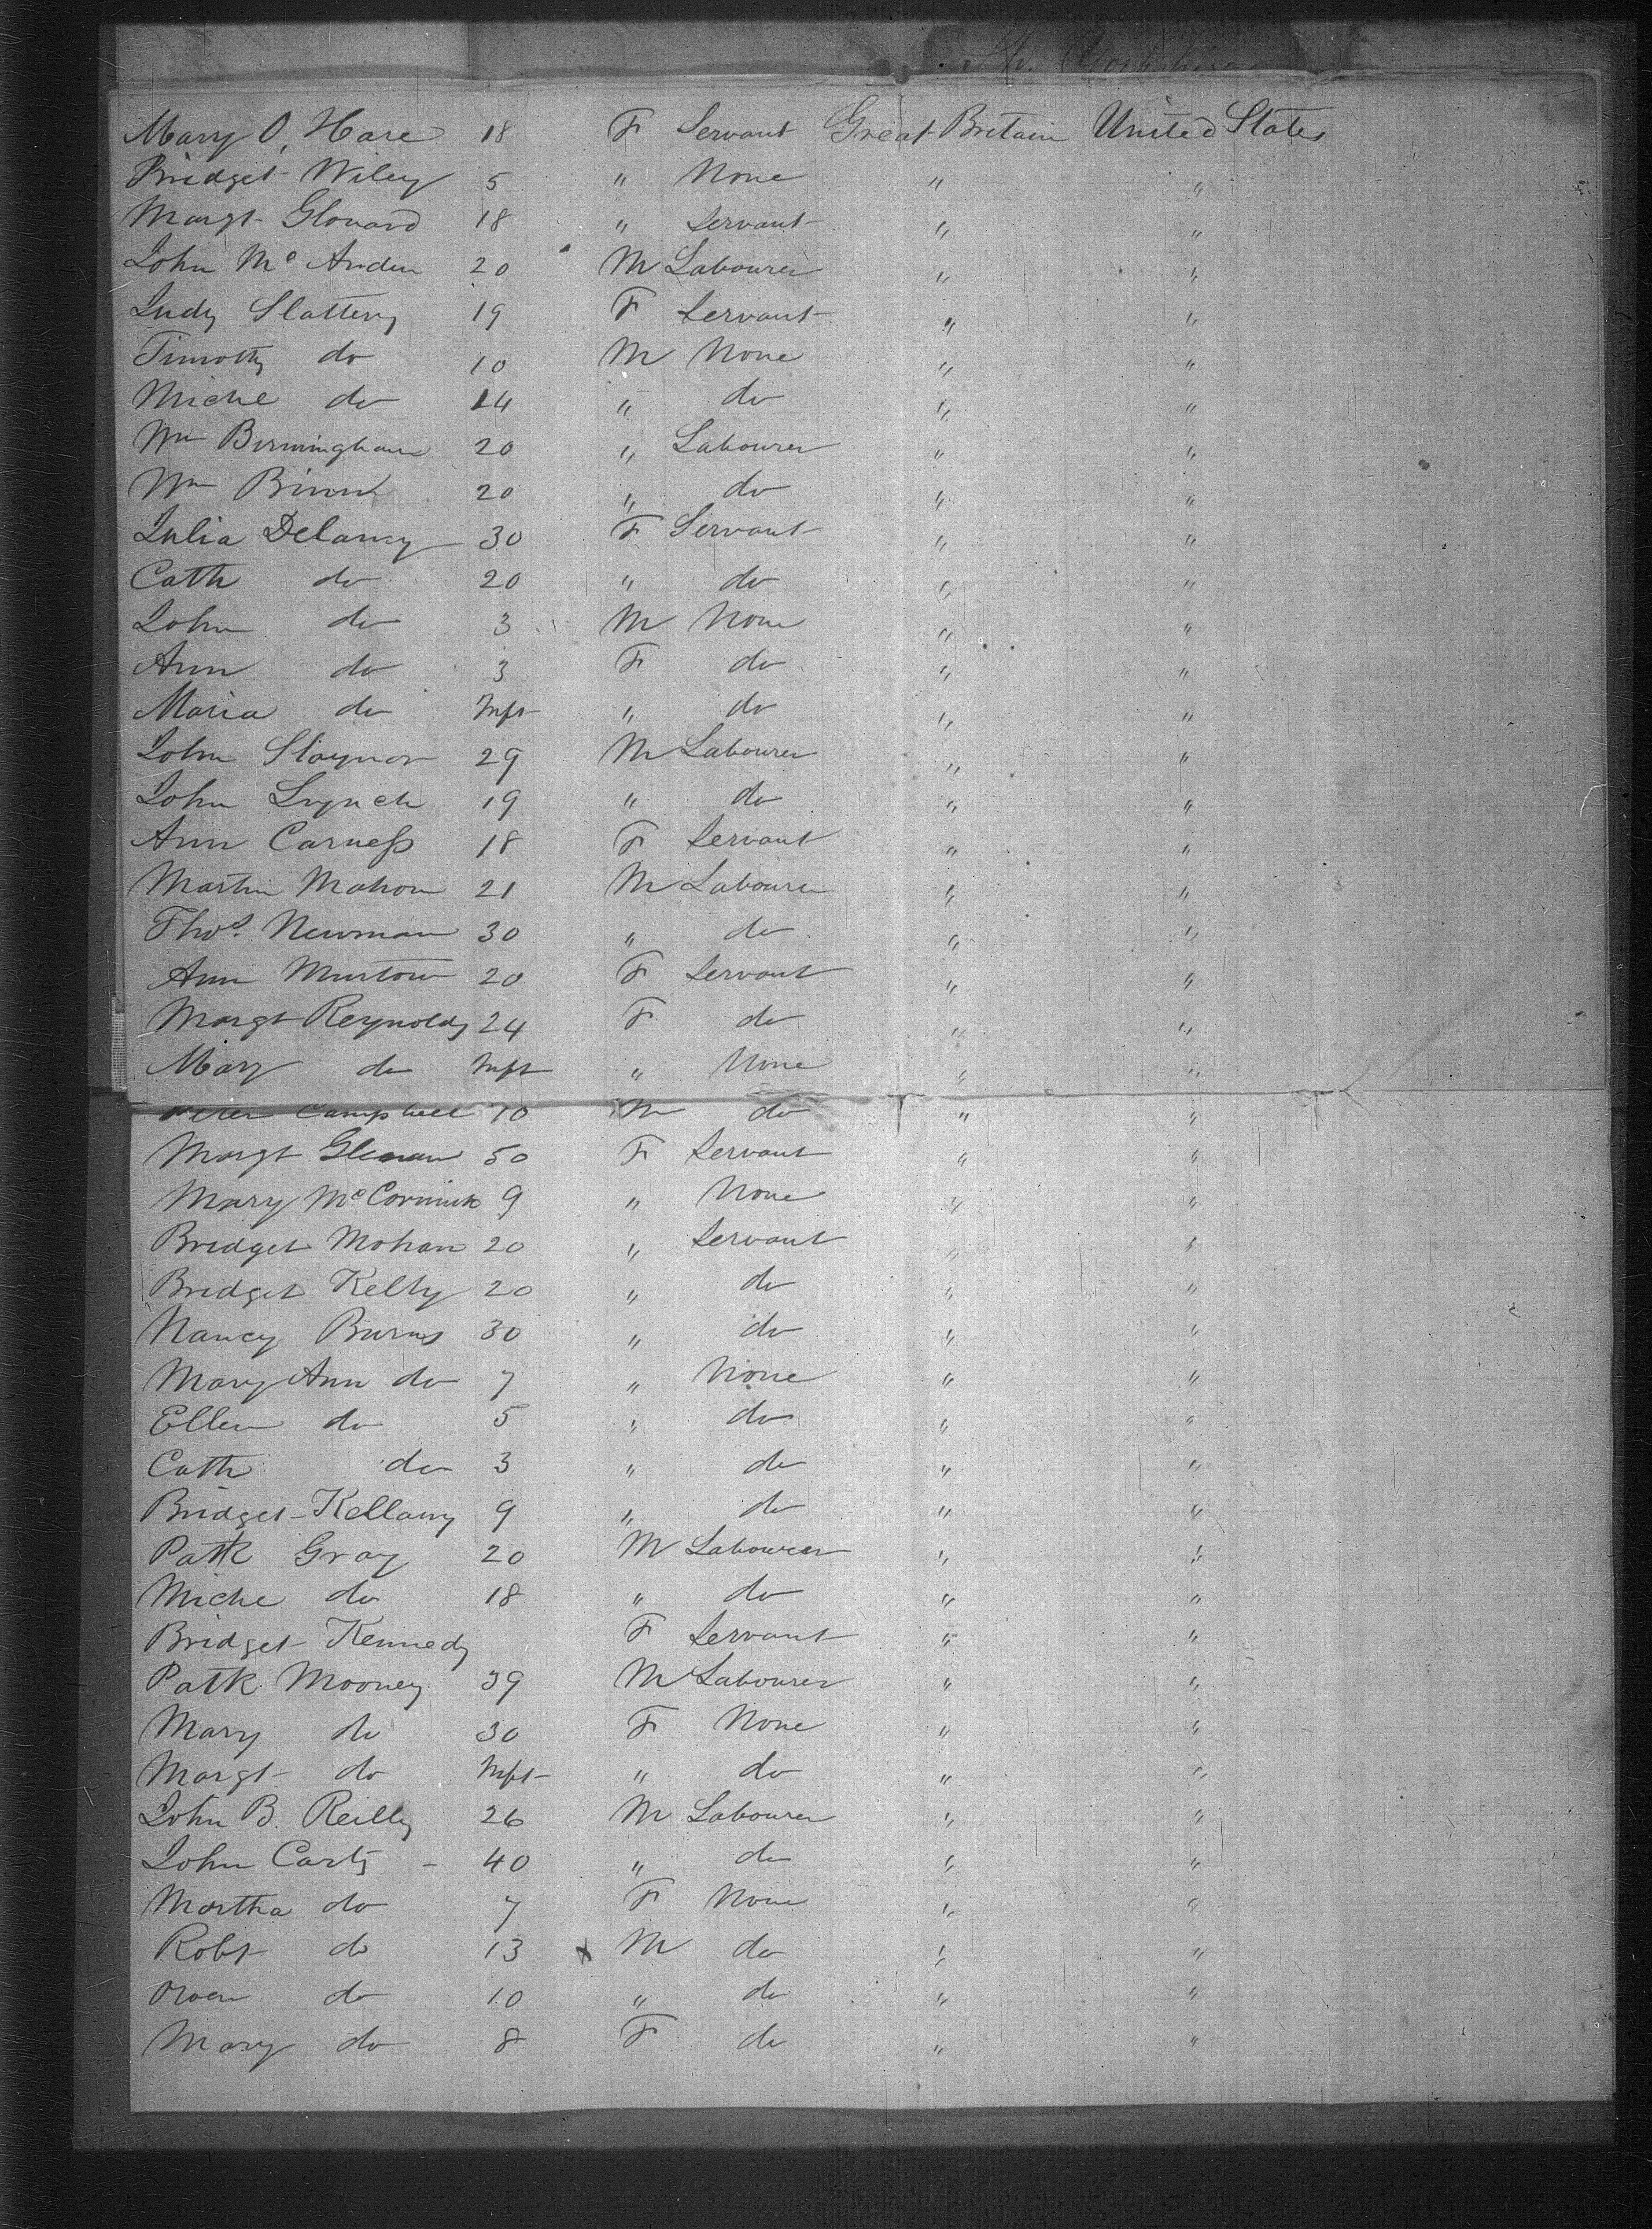 Sh. Yorkshire
Mary O, Hare 18 F Servant Great Britain United States
Bridget Wiley 5 " None " "
Margt Glovard 18 " Servant " "
John Mc Arden 20 M Labourer " "
Judy Slattery 19 F Servant " "
Timothy do 10 M None " "
Miche do 14 " do " "
Wm Birmingham 20 " Labourer " "
Wm 20 " do " "
Julia Delaney 30 F Servant " "
Cath do 20 " do " "
John do 3 M None " "
Ann do 3 F do " "
Maria do Inft " do " "
John Slaynor 29 M Labourer " "
John Lynch 19 " do " "
Ann Carness 18 F Servant " "
Martin Mahon 21 M Labourer " "
Thos. Newman 30 " do " "
Ann Murtow 20 F Servant " "
Margt Reynolds 24 F do " "
Mary do Inft " None " "
Peter Campbell 10 M do " "
Margt 50 F Servant " "
Mary McCormick 9 " None " "
Bridget Mohan 20 " Servant " "
Bridget Kelly 20 " do " "
Nancy Burns 30 " do " "
Mary Ann do 7 " None " "
Ellen do 5 " do " "
Cath do 3 " do " "
Bridget Kellamy 9 " do " "
Patk Gray 20 M Labourer " "
Miche do 18 " do " "
Bridget Kennedy F Servant " "
Patk Mooney 39 M Labourer " "
Mary do 30 F None " "
Margt do Inft " do " "
John B. Reilly 26 M Labourer " "
John Carty - 40 " do " "
Martha do 7 F None " "
Robt do 13 x M do " "
Owen do 10 " do " "
Mary do 8 F do " "